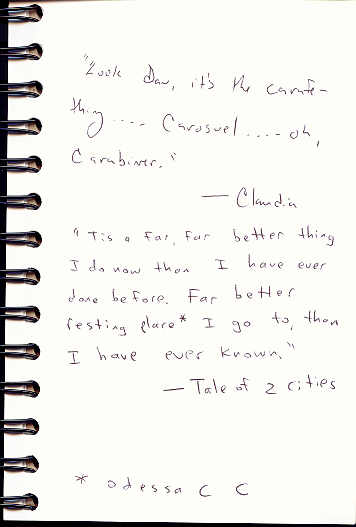 "Look Dan, it's the carafe-
thing.... Carousel....oh,
Carabiner."
— Claudia
"Tis a far, far better thing
I do now than I have ever
done before. Far better
resting place* I go to, than
I have ever known."
— Tale of 2 cities
* odessa C C